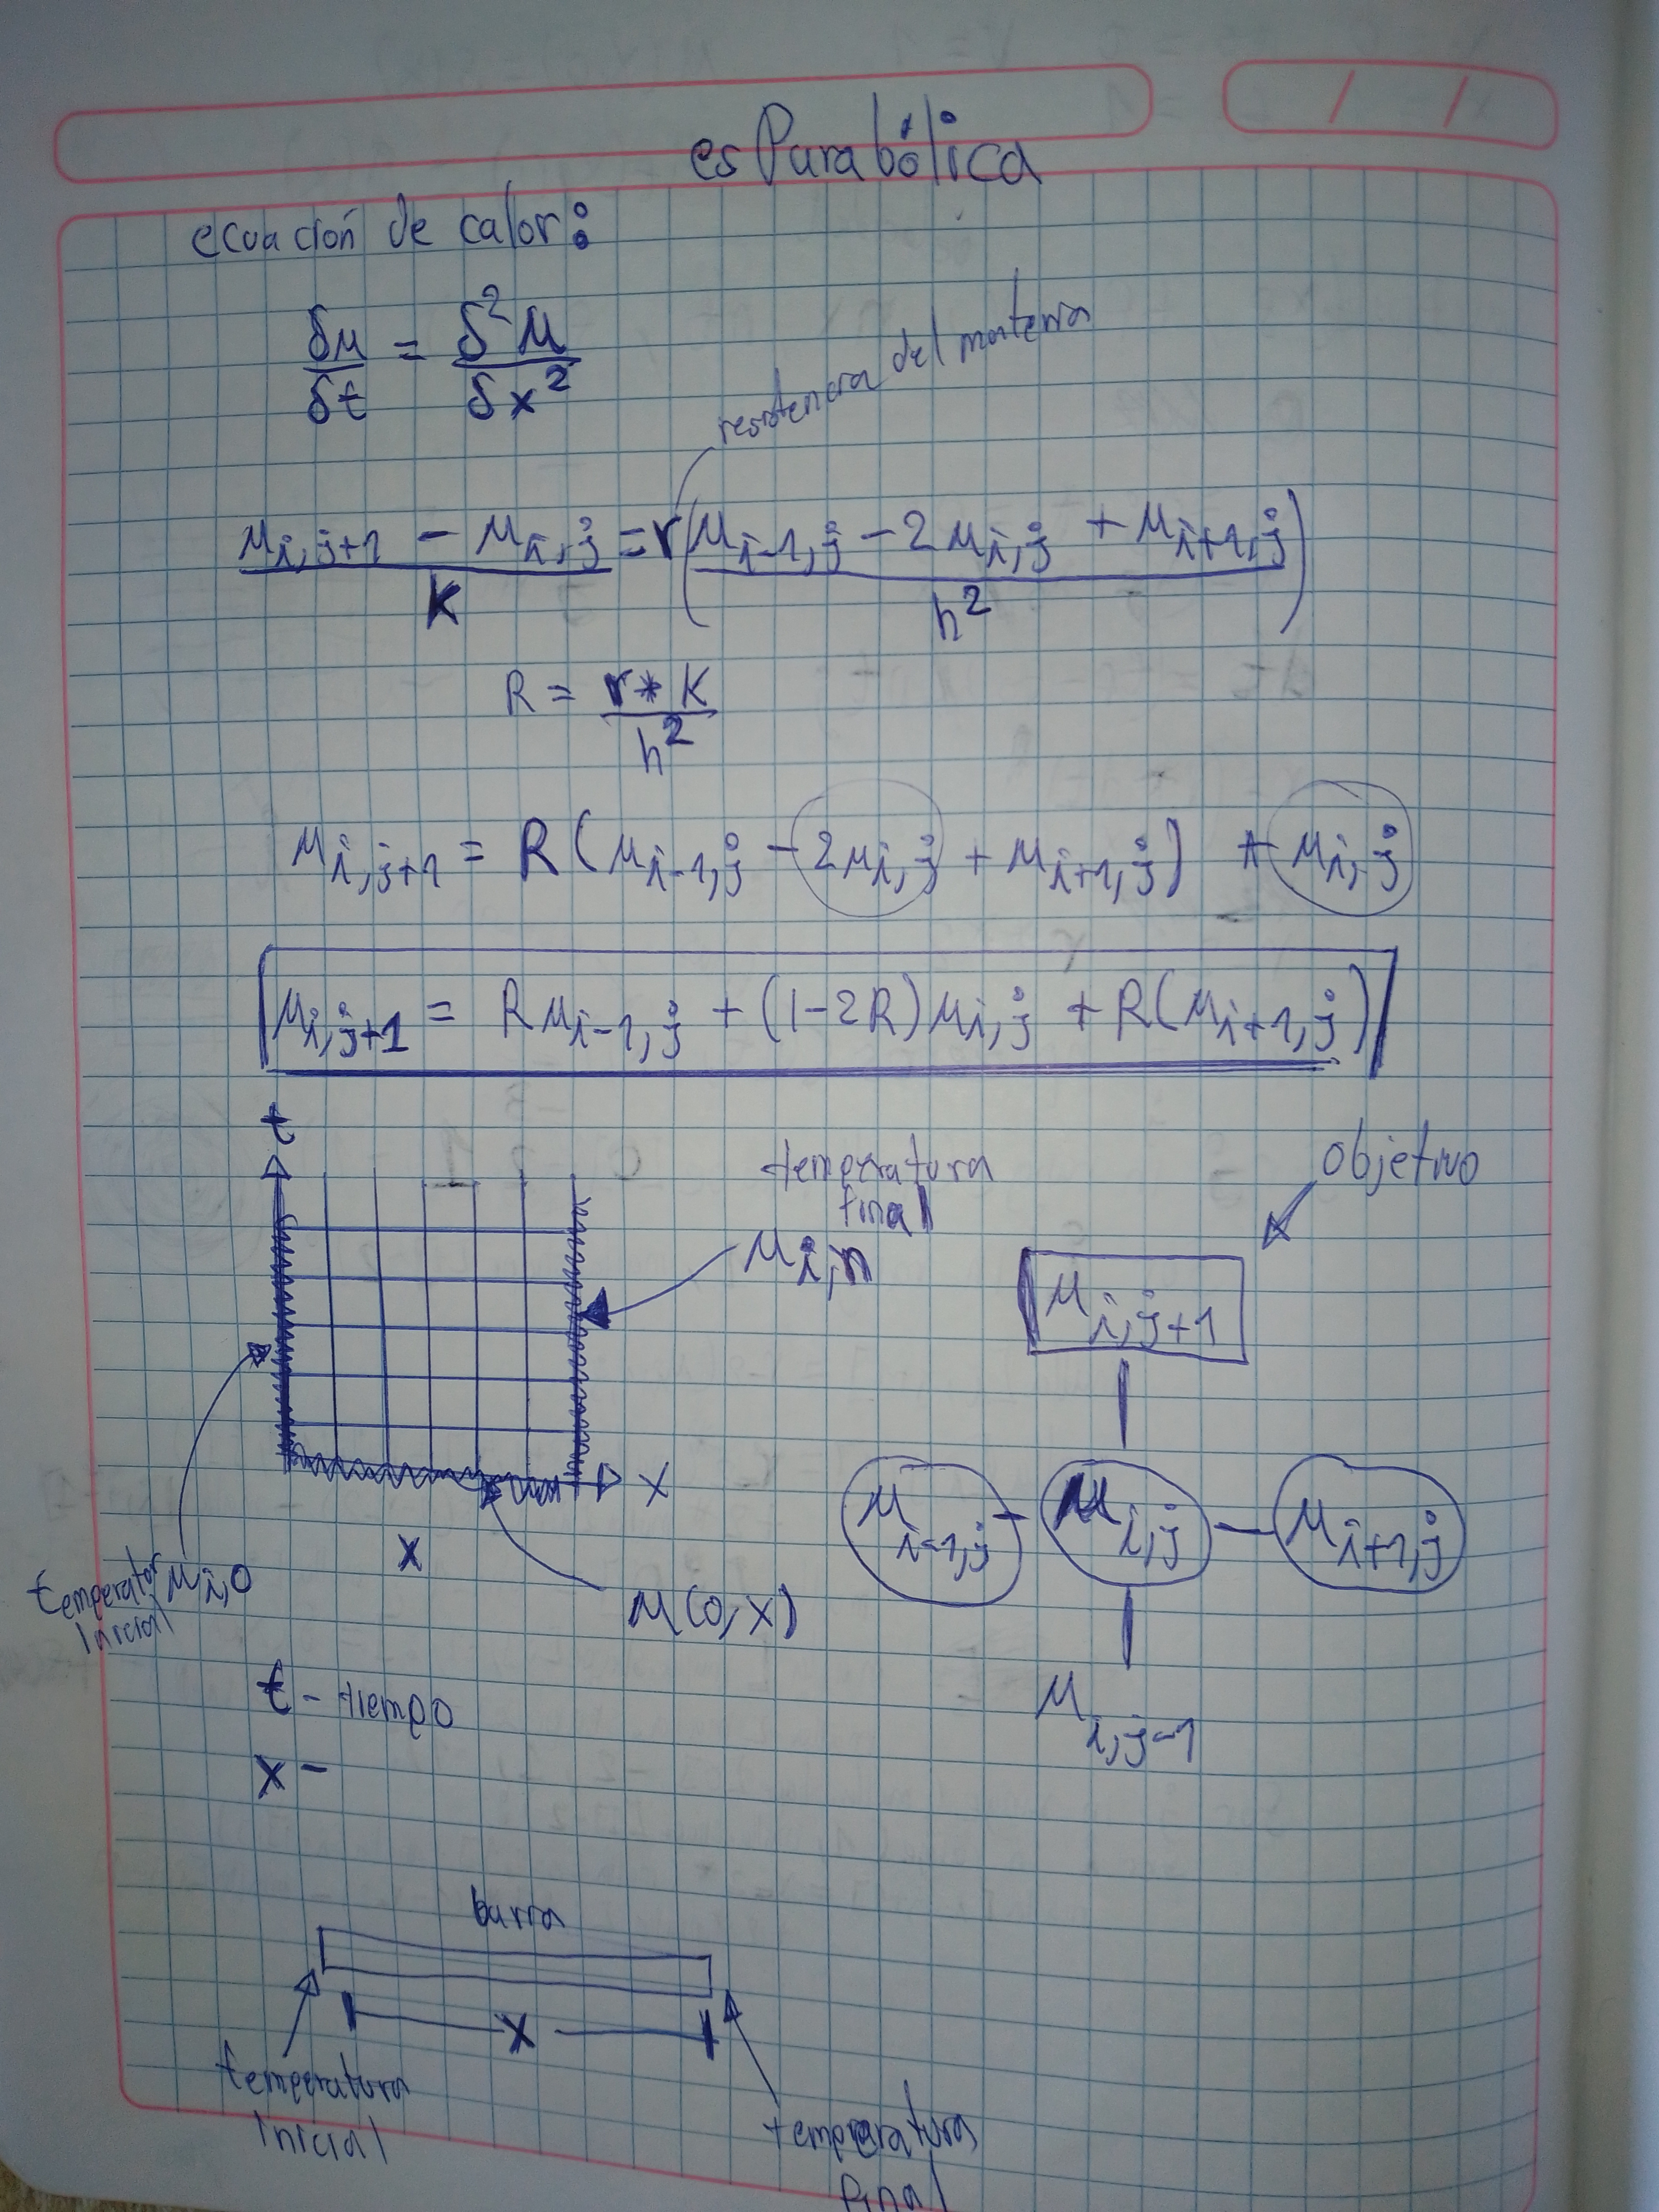 es Parabólica
ecuación de calor:
δμ/δt = δ²μ/δx²
resistencia del materia
(μi,j+1 - μi,j)/K = r((μi-1,j - 2μi,j + μi+1,j)/h²)
R = r*K/h²
μi,j+1 = R(μi-1,j - 2μi,j + μi+1,j) + μi,j
μi,j+1 = Rμi-1,j + (1-2R)μi,j + R(μi+1,j)
t
temperatura
final
μi,n
objetivo
μi,j+1
x
μi-1,j - μi,j - μi+1,j
x
temperator μi,0
Inicial
μ(0,x)
t - tiempo
μi,j-1
x -
barra
x
temperatura
Inicial
temperatura
final